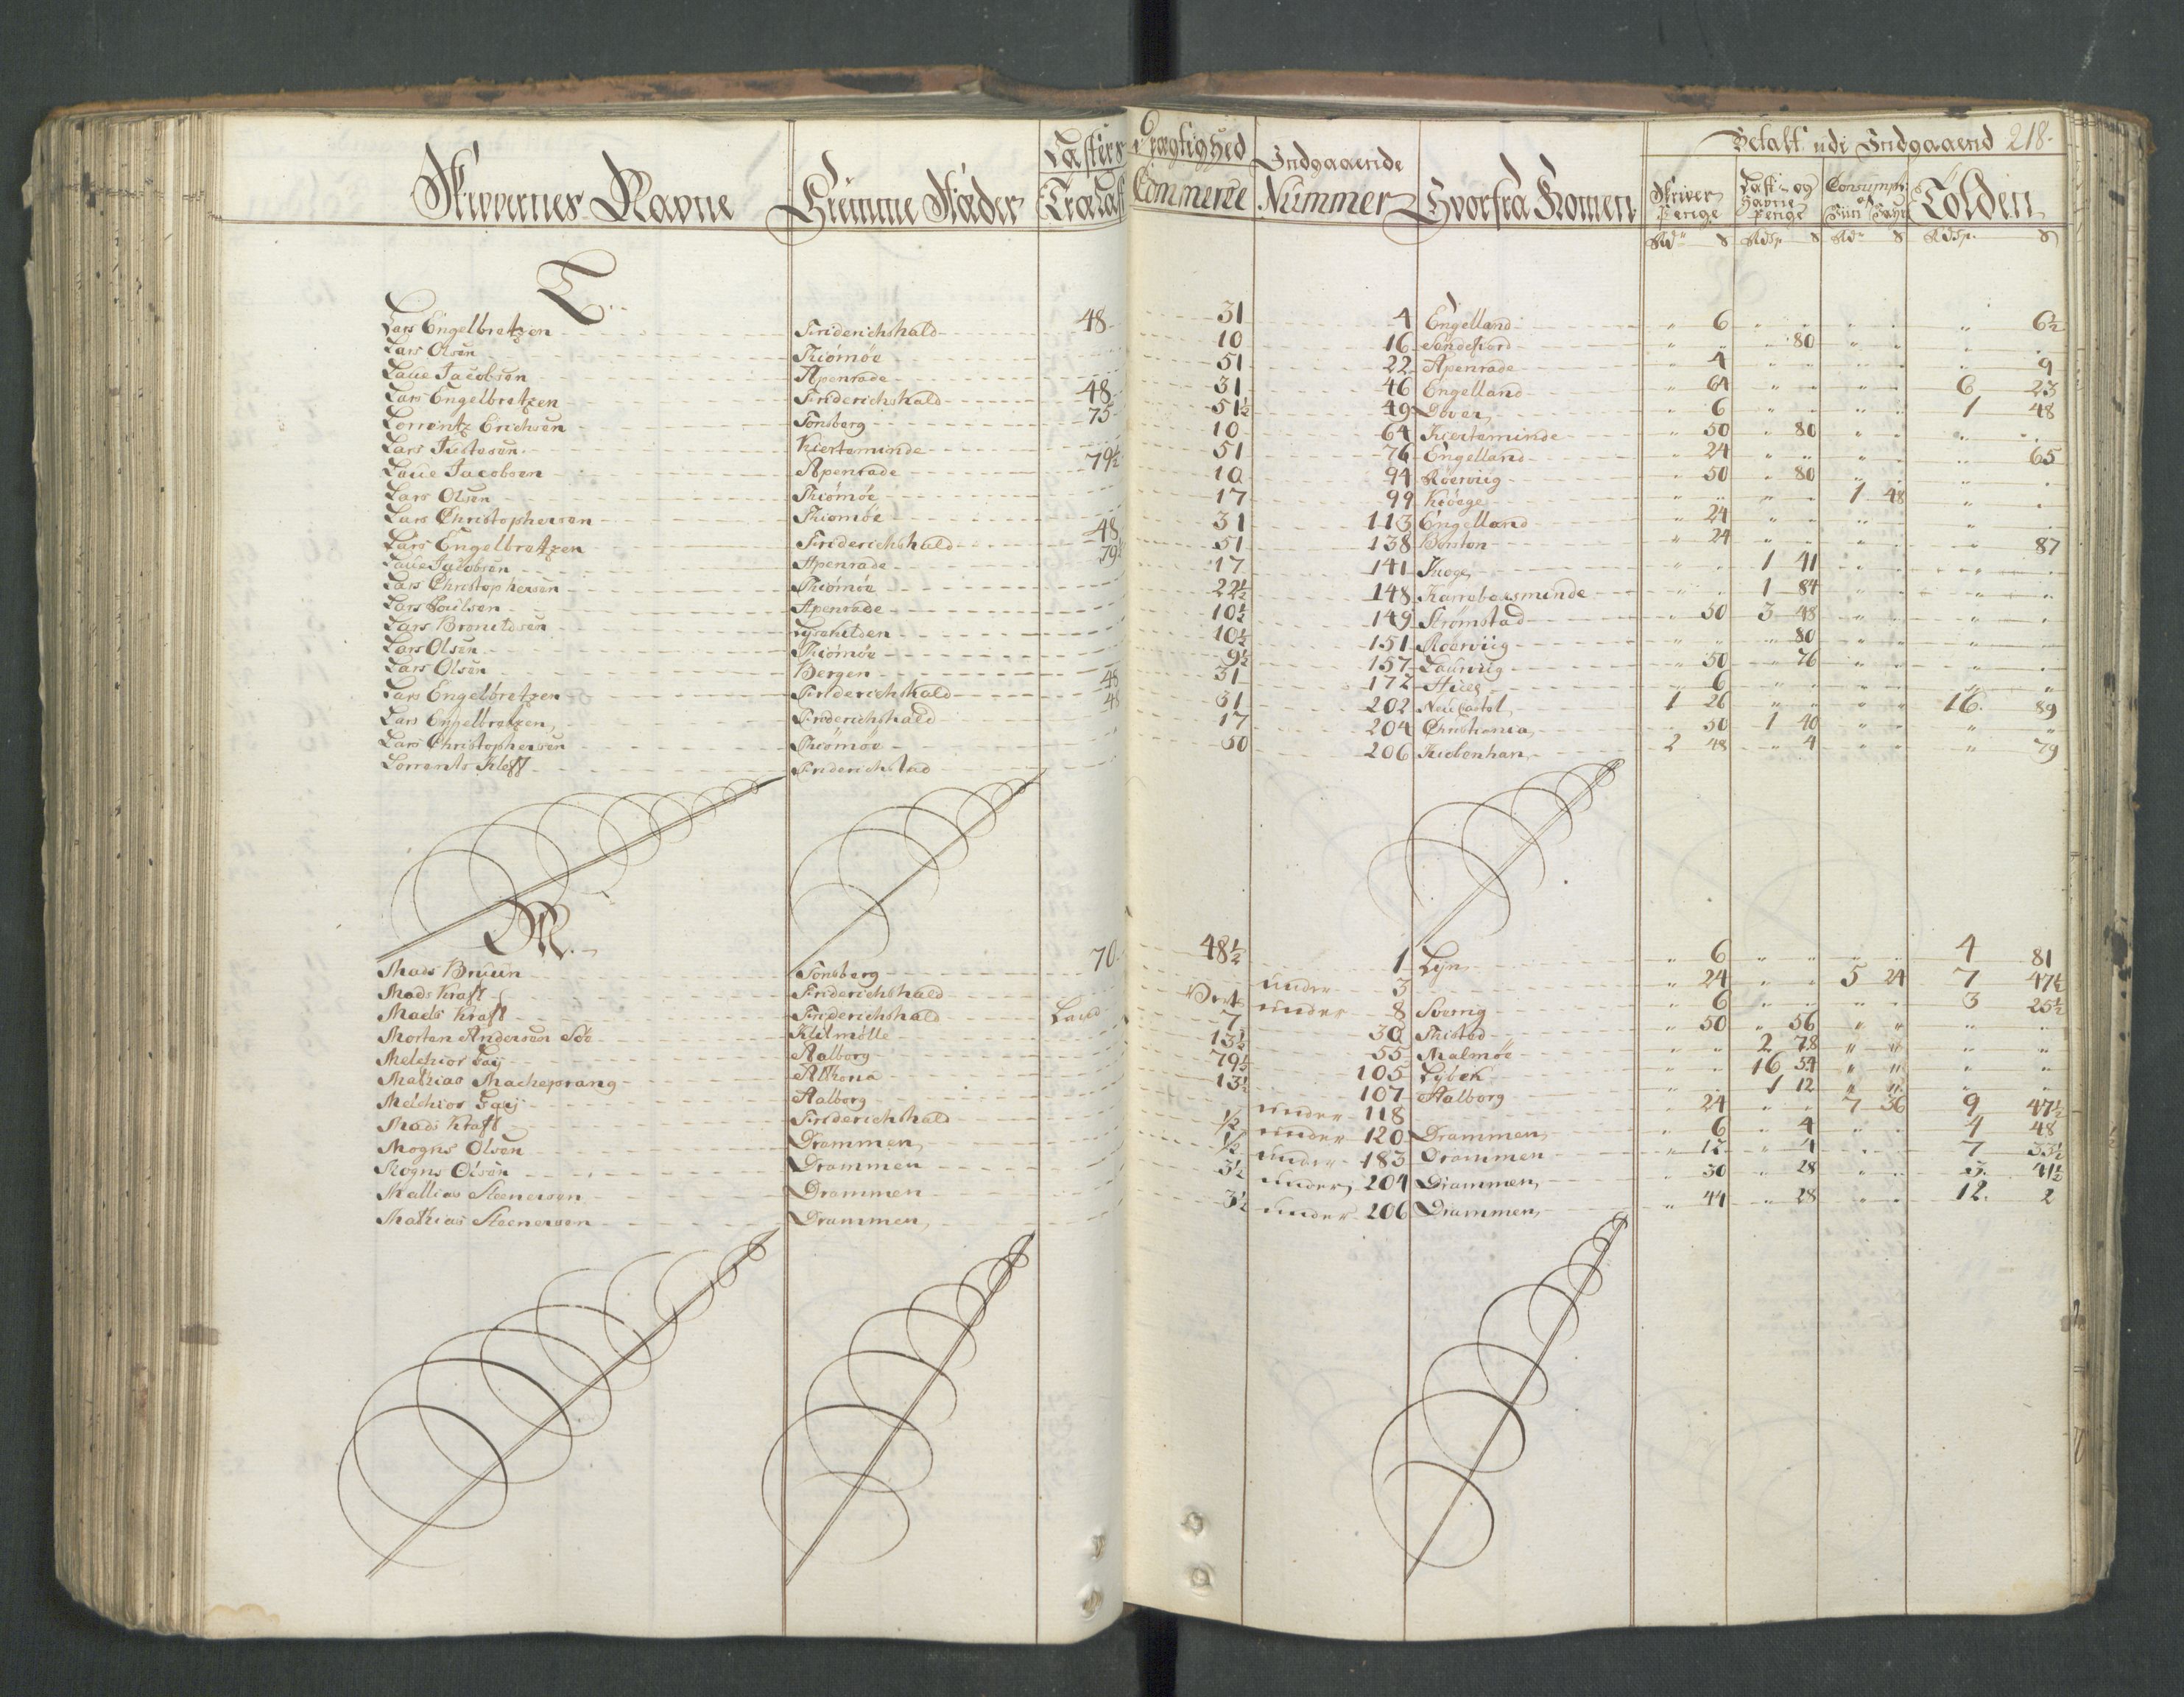 Skippernes Navne Hiemme Stæder Læsters Drægtighed Indgaaende Hvorfra Komen Betalt udi Indgaaend 218.
Trælast Commerce Nummer Skriver Penge Last- og Havne Penge Consumpt: af Viin Tolden
Rdr s Rdsr s Rdr s Rdsr. s
L.
Lars Engelbretzen Friderichshald 48 31 4 Engelland " 6 " " " " " 6½
Lars Olsen Thiömöe 10 16 Sandefiord " " " 80 " " " "
Laue Jacobsen Apenrade 51 22 Apenrade " 4 " " " " " 9
Lars Engelbretzen Friderichshald 48 31 46 Engelland " 64 " " " " 6 23
Lorrentz Erichsen Tonsberg 75 51½ 49 Dover " 6 " " " " 1 48
Lars Justesen Kierteminde 10 64 Kierteminde " 50 " 80 " " " "
Laue Jacobsen Apenrade 79½ 51 76 Engelland " 24 " " " " " 65
Lars Olsen Thiömöe 10 94 Roerviig " 50 " 80 " " " "
Lars Christophersen Thiomöe 17 99 Kiöege " " " " 1 48 " "
Lars Engelbretzen Friderichshald 48 31 113 Engelland " 24 " " " " " "
Laue Jacobsen Apenrade 79½ 51 138 Boston " 24 " " " " " 87
Lars Christophersen Thiömöe 17 141 " " 1 41 " " " "
Lars Poulsen Apenrade 22½ 148 Karrebeksminde " " 1 84 " " " "
Lars 10½ 149 Strømstad " 50 3 48 " " " "
Lars Olsen Thiömöe 10½ 151 Roerviig " " " 80 " " " "
Lars Olsen Bergen 9½ 157 Laurviig " 50 " 76 " " " "
Lars Engelbretzen Friderichshald 48 31 172 " 6 " " " " " "
Lars Engelbretzen Friderichshald 48 31 202 Neu Castel 1 26 " " " " 16. 89
Lars Christophersen Thiömöe 17 204 Christiania " 50 1 40 " " " "
Lorrents Kleft Friderichstad 50 206 Kiøbenhan 2 48 " 4 " " " 79
M.
Mads Bruun Tonsberg 70 48½ 1 Lyn " 6 " " " " 4 81
Mads Kraft Friderichshald under 3 " 24 " " 5 24 7 47½
Mads Kraft Friderichshald under 8 Sverrig " 6 " " " " 3 25½
Morten Andersen Klitmølle 7 30 Thisted " 50 " 56 " " " "
Melchior Faij Aalborg 13½ 55 Malmöe " " 2 78 " " " "
Mathias Macheprang Althona 79½ 105 Lybek " " 16 54 " " " "
Melchior Faij Aalborg 13½ 107 Aalborg " " 1 12 " " " "
Mads Kraft Friderichshald under 118 " 24 " " 7 36 9 47½
Mogns Olsen Drammen ½ under 120 Drammen " 6 " 4 " " 4 48
Mogns Olsen Drammen ½ under 183 Drammen " 12 " 4 " " 7 33½
Mathias Steenersen Drammen 3½ under 204 Drammen " 30 " 28 " " 3. 41½
Mathias Steenersen Drammen 3½ under 206 Drammen " 44 " 28 " " 12. 2